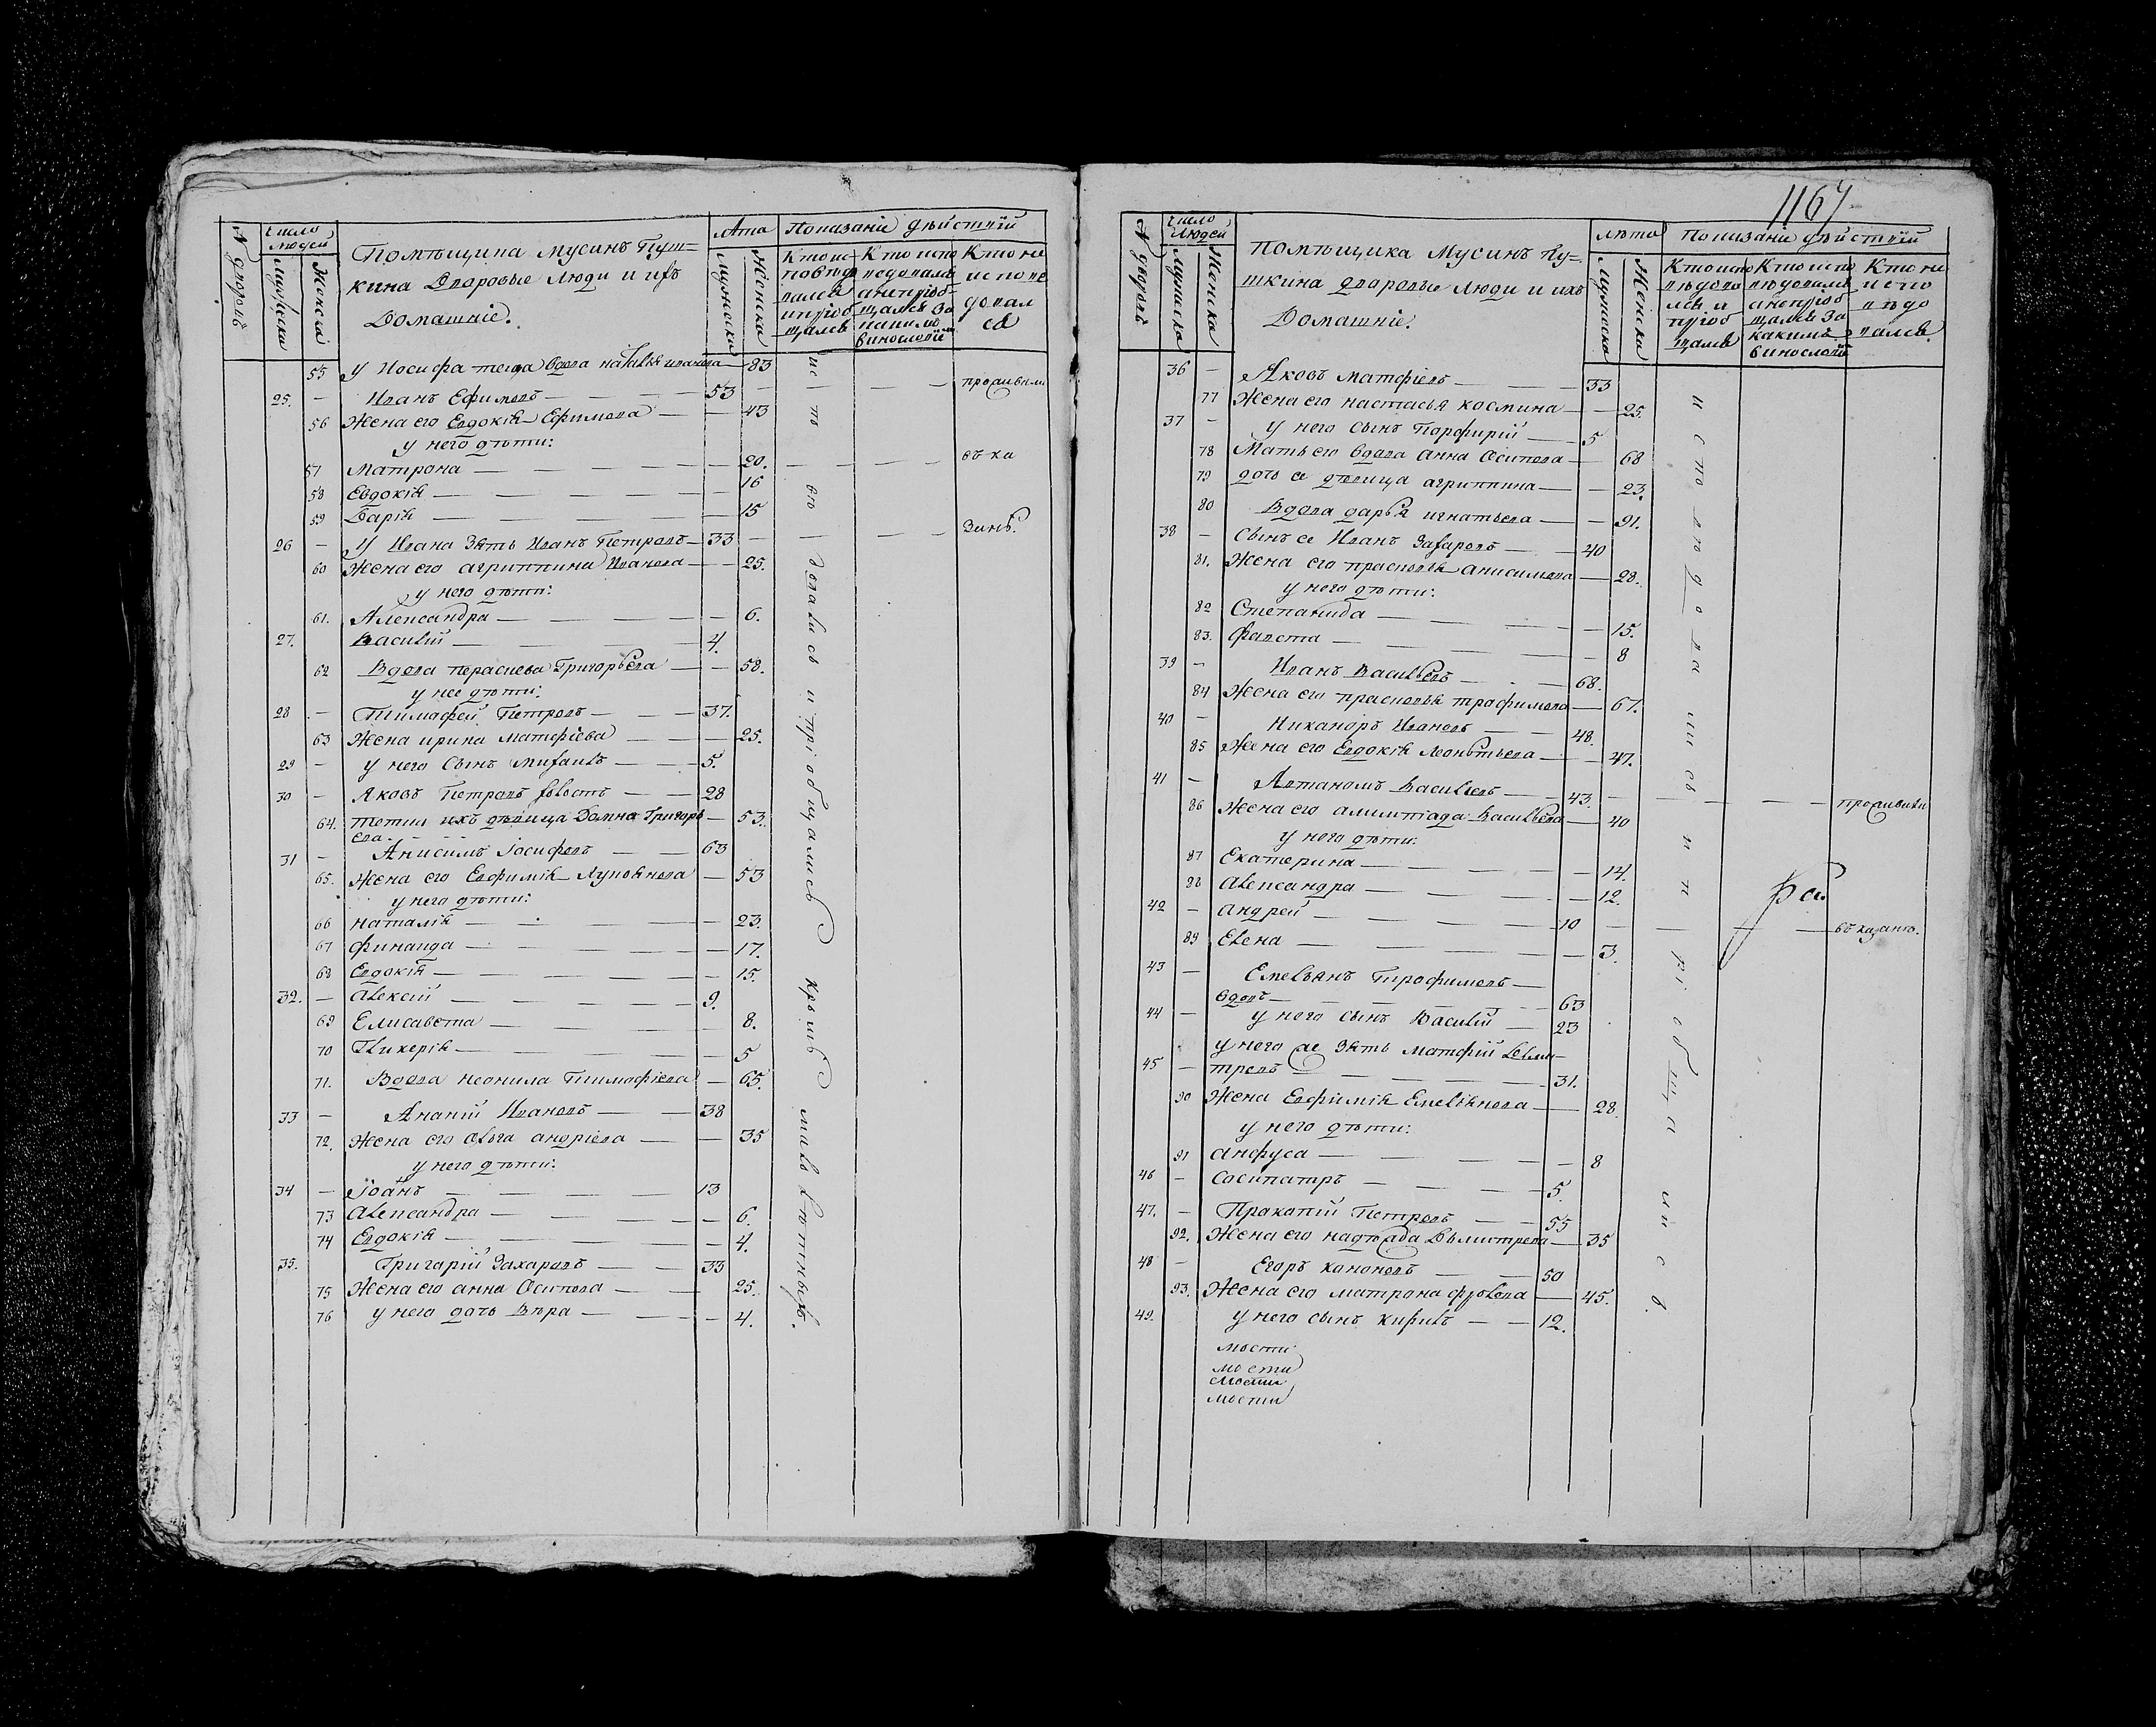 N дворовъ
Число людей
Мужеска
Женска
Помѣщика Мусинъ Пуш-
кина Дворовые Люди и ихъ
Домашніе.
Лѣта
Мужеска
Женска
Показаніе дѣйствій
Кто испо
вѣдо
вался
и пріоб
щался
Кто испо
вѣдовалъ
а не пріоб
щался за
какимъ
винословіе
Кто не
исповѣ
довал
ся
55 у Иосифа теща вдова наталія иванова — 83
25. — Иванъ Ефимовъ — 53 — — — прославили
56 Жена его Евдокія Ефимова — 43
у него дѣти:
57 Матрона — 20. — — —
58 Евдокія — 16
59 Дарія — 15
26 — У Ивана Зять Иванъ Петровъ — 33 — — —
60 Жена его агриппина Иванова — 25.
у него дѣти:
61. Александра — 6.
27. Василій — 4.
62 Вдова параскева Григорьева — 58.
у нее дѣти:
28 — Тимофей Петровъ — 37.
63 Жена ирина матфіева — 25.
29 — у него сынъ Михаилъ — 5.
30 — Яковъ Петровъ холостъ — 28
64. тетка ихъ дѣвица Домна Григорь — 53.
ева
31 — Анисимъ Іосифовъ — 63
65. Жена его Евфимія Лукоянова — 53
у него дѣти:
66 наталія — 23.
67 финаида — 17.
68 Евдокія — 15.
32. — Алексій — 9.
69 Елисавета — 8.
70 Гликерія — 5
71. Вдова неонила Тимофіева — 65.
33 — Ананій Ивановъ — 38
72. Жена его ольга андріева — 35
у него дѣти:
34 — Іоанъ — 13
73 Александра — 6.
74 Евдокія — 4.
35. Григорій Захаровъ — 33
75 Жена его анна Осипова — 25.
76 у него дочь Вѣра — 4.
исповѣдовались и пріобщались кромѣ малолѣтныхъ.
1164
N дворовъ
Число Людей
Мужеска
Женска
Помѣщика Мусинъ Пу=
шкина дворовые люди и ихъ
Домашніе.
лѣта
Мужеска
Женска
Показаніе дѣйствій
Кто испо
вѣдова
лся и
пріоб
щался
Кто испо
вѣдовалъ
а не пріоб
щался за
какимъ
винословіе
Кто не
испо
вѣдо
вался.
36 — Яковъ Матфіевъ — 33
77 Жена его настасья космина — 25.
37 — у него сынъ Порфирій — 5
78 Мать его вдова анна Осипова — 68
79 дочь ее дѣвица агриппина — 23.
80 Вдова дарья игнатьева — 91.
38 — Сынъ ее Иванъ Захаровъ — 40
81. Жена его прасковья анисимова — 28.
у него дѣти:
82 Степанида — 15.
83. Фавста — 8
39 — Иванъ Васильевъ — 68.
84 Жена его прасковья трофимова — 67.
40 — Никаноръ Ивановъ — 48.
85 Жена его Евдокія Леонтьева — 47.
41 — Автаномъ Васильевъ — 43. — — — прославили
86 Жена его алимпіада Васильева — 40
у него дѣти:
87 Екатерина — 14.
88 Александра — 12.
42 — Андрей — 10 — — — въ казань.
89 Елена — 3.
43 — Емельянъ Трофимовъ —
вдовъ — 63
44 — у него сынъ Василій — 23
у него же зять Матфій Дьми-
45 — тревъ — 31.
90 Жена Евфимія Емеліянова — 28.
у него дѣти:
91 Анфуса — 8
46 — Сосипатръ — 5.
47. — Пракапій Петровъ — 55
92. Жена его надѣжда Дьмитрева — 35
48 — Егоръ каноновъ — 50
93. Жена его матрона фролова — 45.
49. у него сынъ Кирилъ — 12.
исповѣдовались и пріобщались.
мости
мости
мости
мости